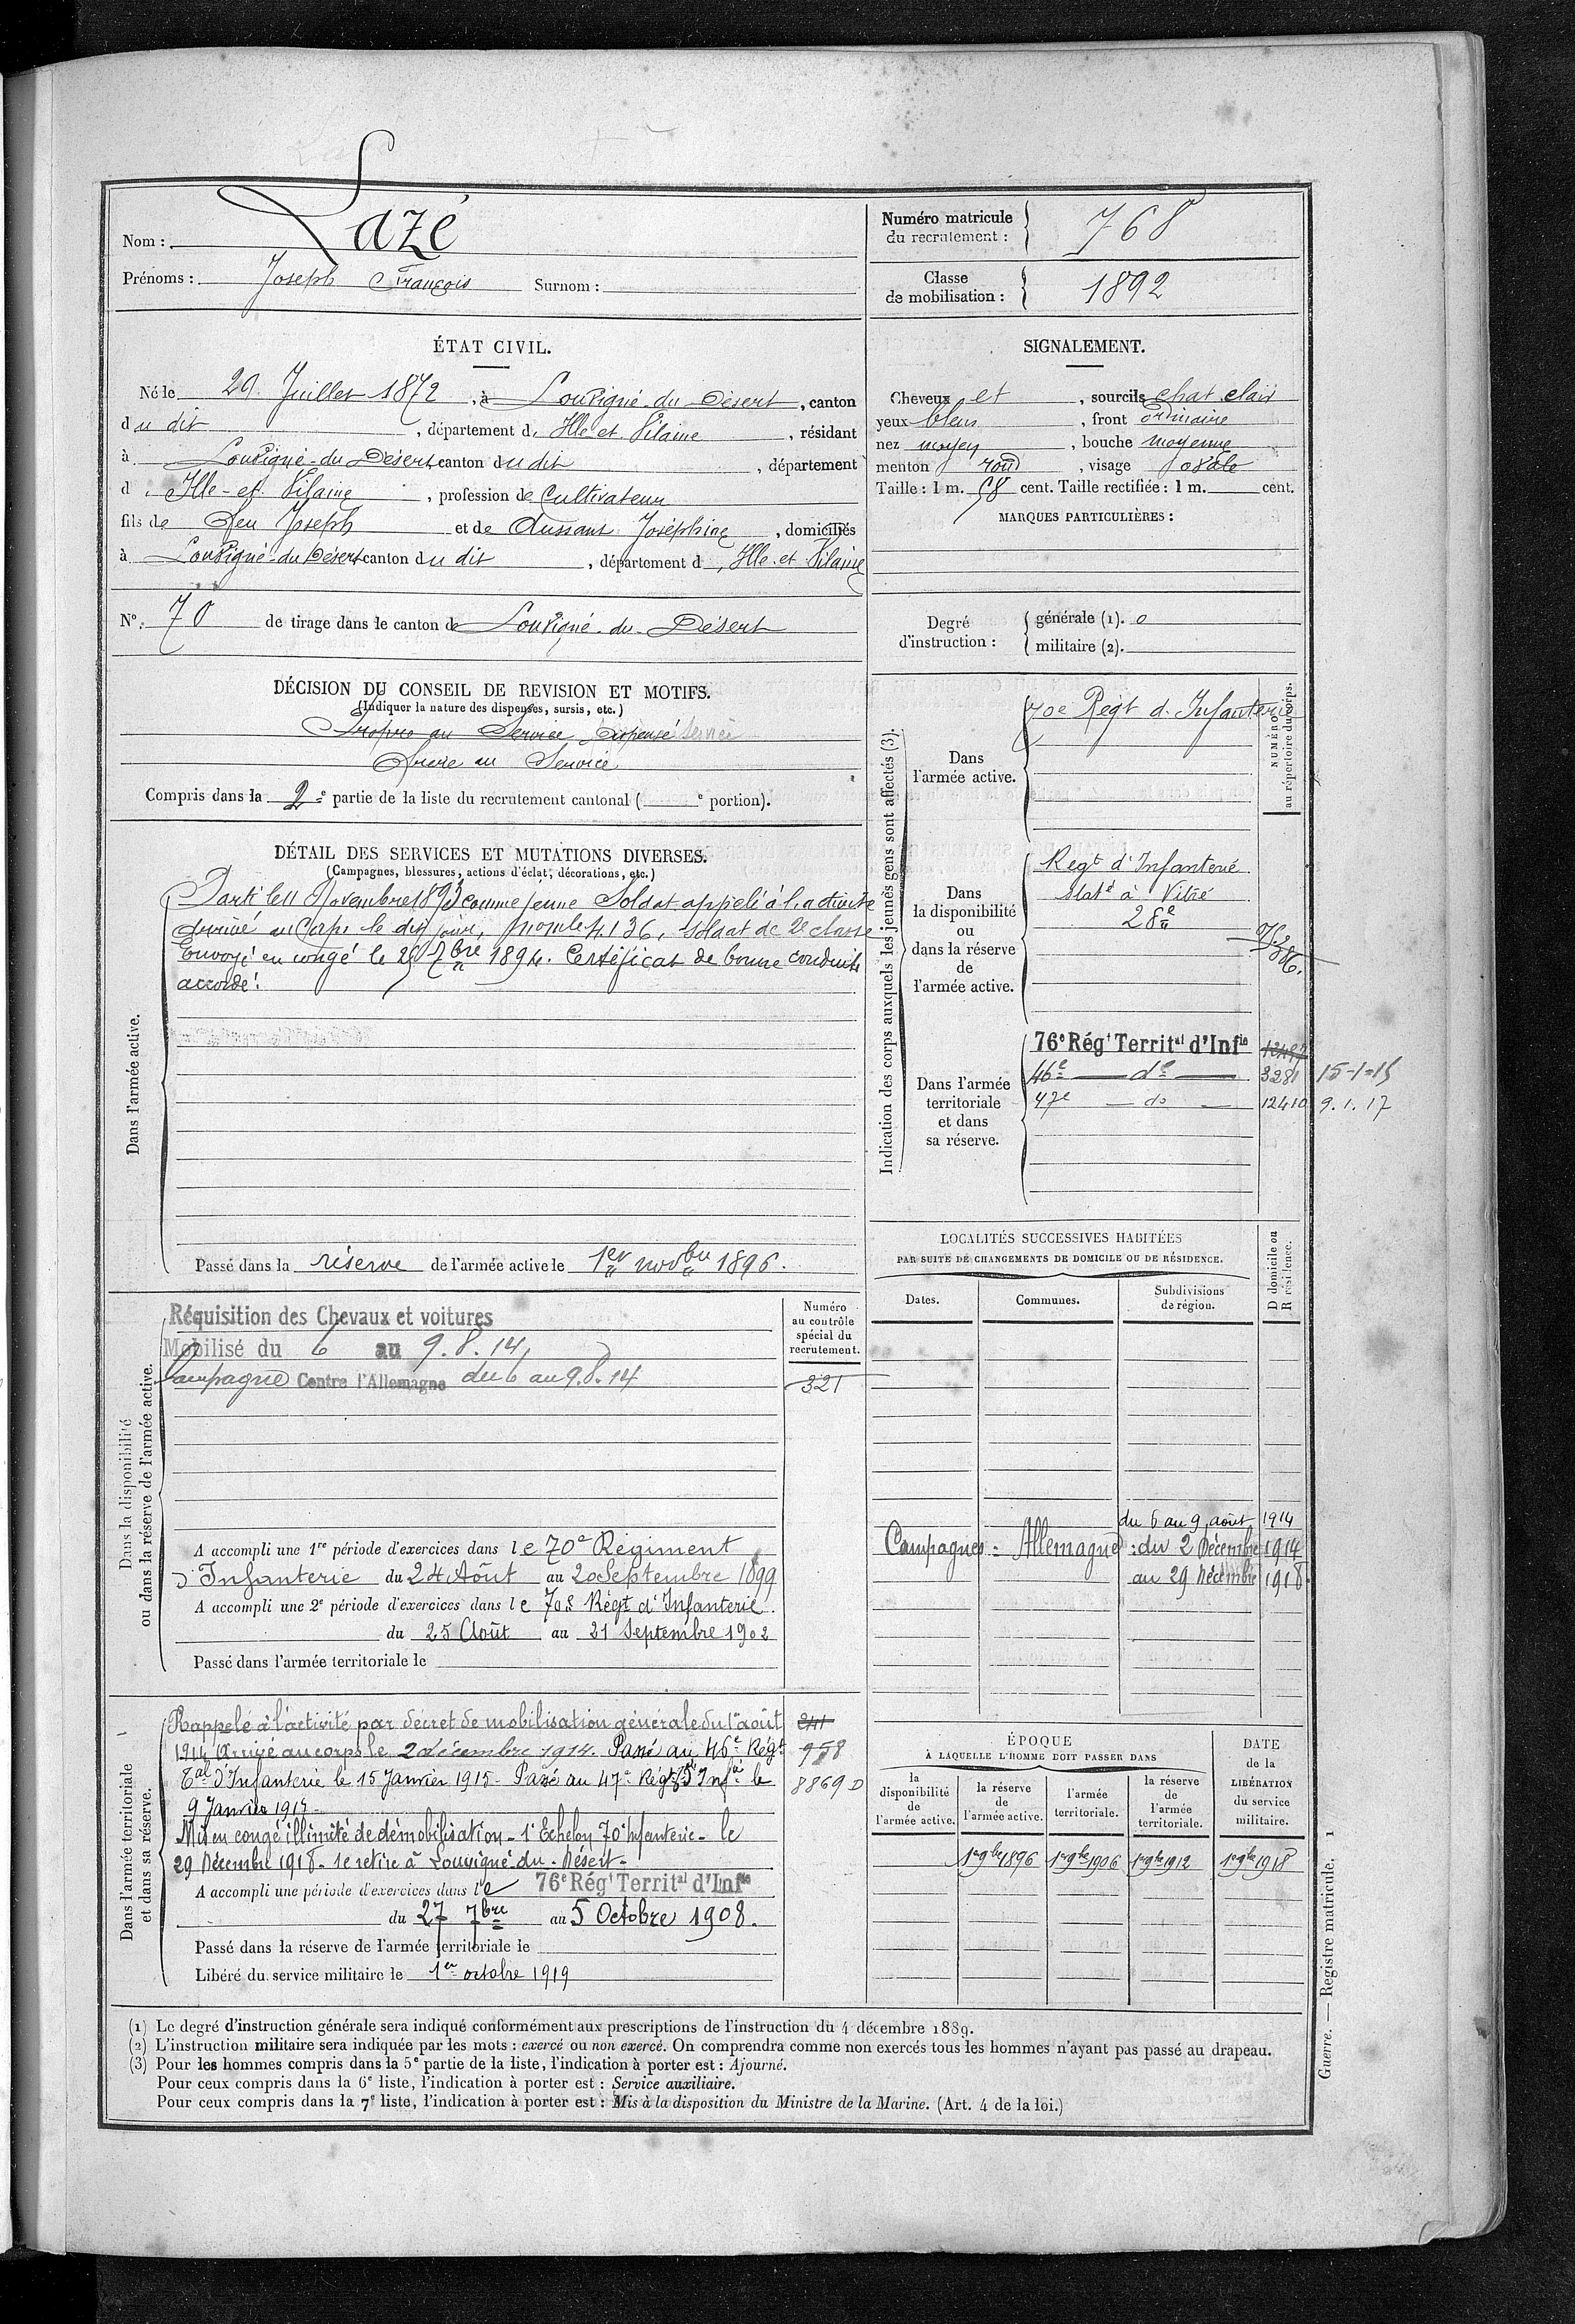 Nom : Lazé
Prénoms : Joseph François Surnom :
Numéro matricule du recrutement : 768
Classe de mobilisation : 1892
ÉTAT CIVIL.
Né le 29 Juillet 1872, à Louvigné-du-Désert, canton
du dit, département d'Ille-et-Vilaine, résidant
à Louvigné-du-Désert canton du dit, département
d'Ille-et-Vilaine, profession de Cultivateur
fils de feu Joseph et de Dussant Joséphine, domiciliés
à Louvigné-du-Désert canton du dit, département d'Ille-et-Vilaine
N° 70 de tirage dans le canton de Louvigné-du-Désert
SIGNALEMENT.
Cheveux et, sourcils chat. clair
yeux bleus, front ordinaire
nez moyen, bouche moyenne
menton rond, visage ovale
Taille : 1 m. 58 cent. Taille rectifiée : 1 m. cent.
MARQUES PARTICULIÈRES :
Degré d'instruction : générale (1). 0
militaire (2).
DÉCISION DU CONSEIL DE REVISION ET MOTIFS.
(Indiquer la nature des dispenses, sursis, etc.)
Propre au Service Dispensé
Frère au Service
Compris dans la 2e partie de la liste du recrutement cantonal ( e portion).
DÉTAIL DES SERVICES ET MUTATIONS DIVERSES.
(Campagnes, blessures, actions d'éclat, décorations, etc.)
Dans l'armée active.
Parti le 11 Novembre 1893 comme jeune Soldat appelé à l'activité
Arrivé au Corps le dit jour, Mcule 4136, soldat de 2e classe
Envoyé en congé le 25 7bre 1894. Certificat de bonne conduite
accordé.
Passé dans la réserve de l'armée active le 1er novbre 1896.
Indication des corps auxquels les jeunes gens sont affectés (3).
NUMÉRO au répertoire du corps.
Dans l'armée active.
70e Régt d'Infanterie
Dans la disponibilité ou dans la réserve de l'armée active.
Regt d'Infanterie
Staté à Vitré
28e
Dans l'armée territoriale et dans sa réserve.
76e Régt Territal d'Infie
46e — do — 3281 15-1-15
47e — do — 12410 9.1.17
LOCALITÉS SUCCESSIVES HABITÉES
PAR SUITE DE CHANGEMENTS DE DOMICILE OU DE RÉSIDENCE.
Dates. Communes. Subdivisions de région. D domicile ou R résidence.
du 6 au 9 août 1914
Campagnes : Allemagne : du 2 Décembre 1914
au 29 Décembre 1918
Dans la disponibilité ou dans la réserve de l'armée active.
Numéro au contrôle spécial du recrutement.
Réquisition des Chevaux et voitures
Mobilisé du 6 au 9.8.14
Campagne Contre l'Allemagne du 6 au 9.8.14
321
A accompli une 1re période d'exercices dans le 70e Régiment
d'Infanterie du 24 Août au 20 Septembre 1899
A accompli une 2e période d'exercices dans le 70e Régt d'Infanterie
du 25 Août au 21 Septembre 1902
Passé dans l'armée territoriale le
Dans l'armée territoriale et dans sa réserve.
Rappelé à l'activité par décret de mobilisation générale du 1er août 241
1914 Arrivé au corps le 2 décembre 1914. Passé au 46e Régt 958
Tal d'Infanterie le 15 Janvier 1915 - Passé au 47e Régt Tal d'Infie le 8869 D
9 Janvier 1917 -
Mis en congé illimité de démobilisation - 1er Echelon 70e Infanterie - le
29 Décembre 1918 - se retire à Louvigné-du-Désert -
A accompli une période d'exercices dans le 76e Régt Territal d'Infie
du 27 7bre au 5 Octobre 1908.
Passé dans la réserve de l'armée territoriale le
Libéré du service militaire le 1er octobre 1919
ÉPOQUE
À LAQUELLE L'HOMME DOIT PASSER DANS
la disponibilité de l'armée active.
la réserve de l'armée active.
l'armée territoriale.
la réserve de l'armée territoriale.
DATE de la LIBÉRATION du service militaire.
1er 9bre 1896 1er 9bre 1906 1er 9bre 1912 1er 9bre 1918
(1) Le degré d'instruction générale sera indiqué conformément aux prescriptions de l'instruction du 4 décembre 1889.
(2) L'instruction militaire sera indiquée par les mots : exercé ou non exercé. On comprendra comme non exercés tous les hommes n'ayant pas passé au drapeau.
(3) Pour les hommes compris dans la 5e partie de la liste, l'indication à porter est : Ajourné.
Pour ceux compris dans la 6e liste, l'indication à porter est : Service auxiliaire.
Pour ceux compris dans la 7e liste, l'indication à porter est : Mis à la disposition du Ministre de la Marine. (Art. 4 de la loi.)
Guerre. — Registre matricule. 1